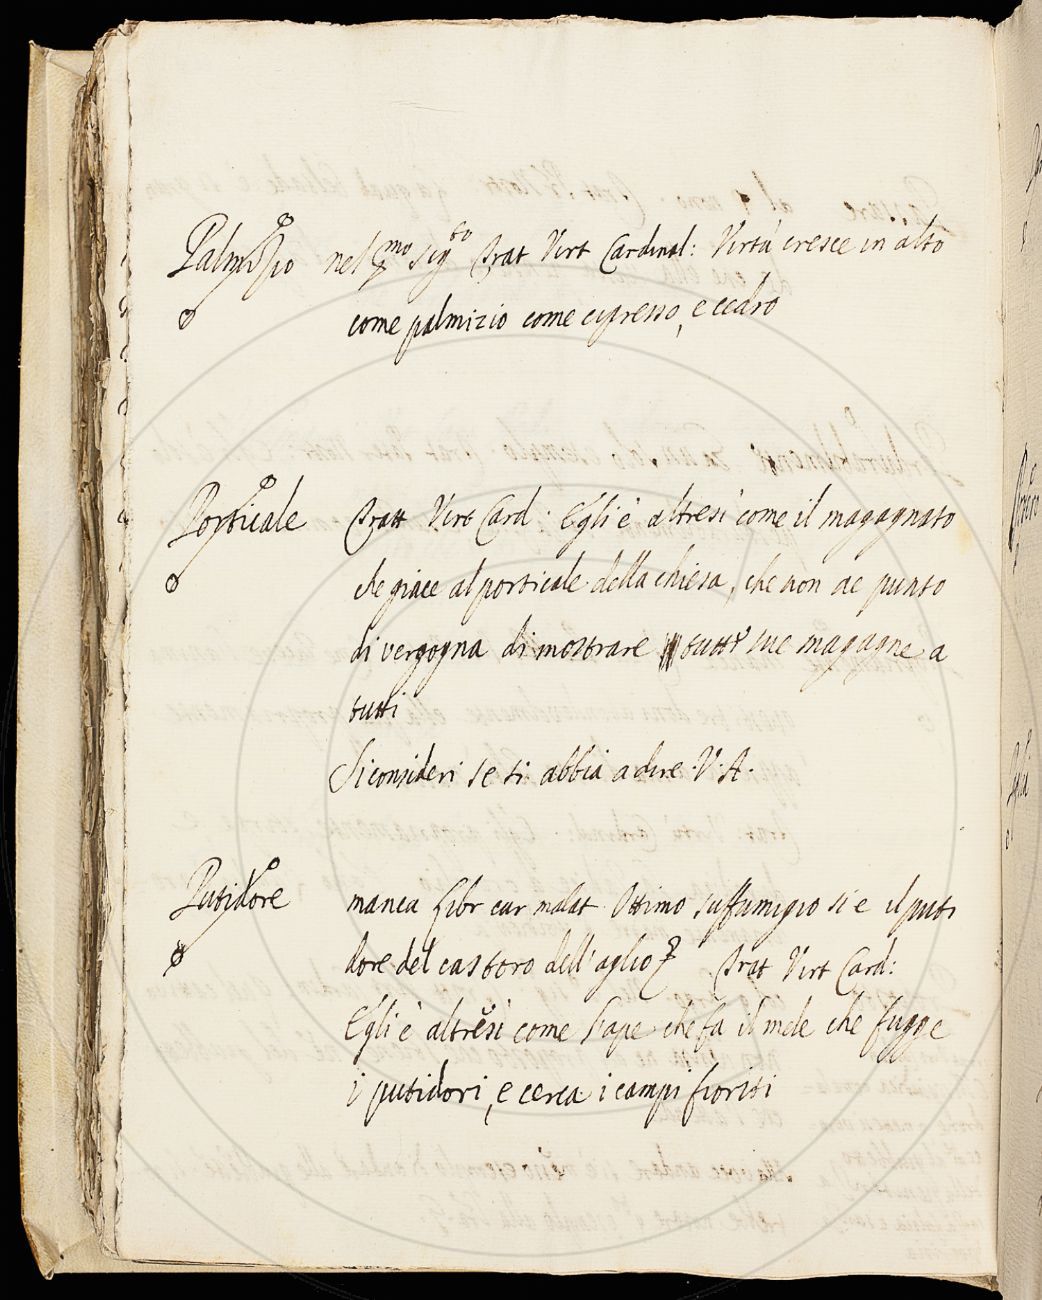 Palmizio nel pmo sigto Trat Virt Cardinal: Virtù cresce in alto
come palmizio come cipresso, e cedro
Porticale Tratt Virt Card: Egli è altresì come il magagnato
che giace al porticale della chiesa, che non ae punto
di vergogna di mostrare tutte sue magagne a
tutti
Si consideri se si abbia a dire V. A.
Putidore manca Libr cur malat Ottimo suffumigio si e il puti
dore del castoro dell'aglio Trat Virt Card:
Egli è altresì come l'ape che fa il mele che fugge
i putidori, e cerca i campi fioriti